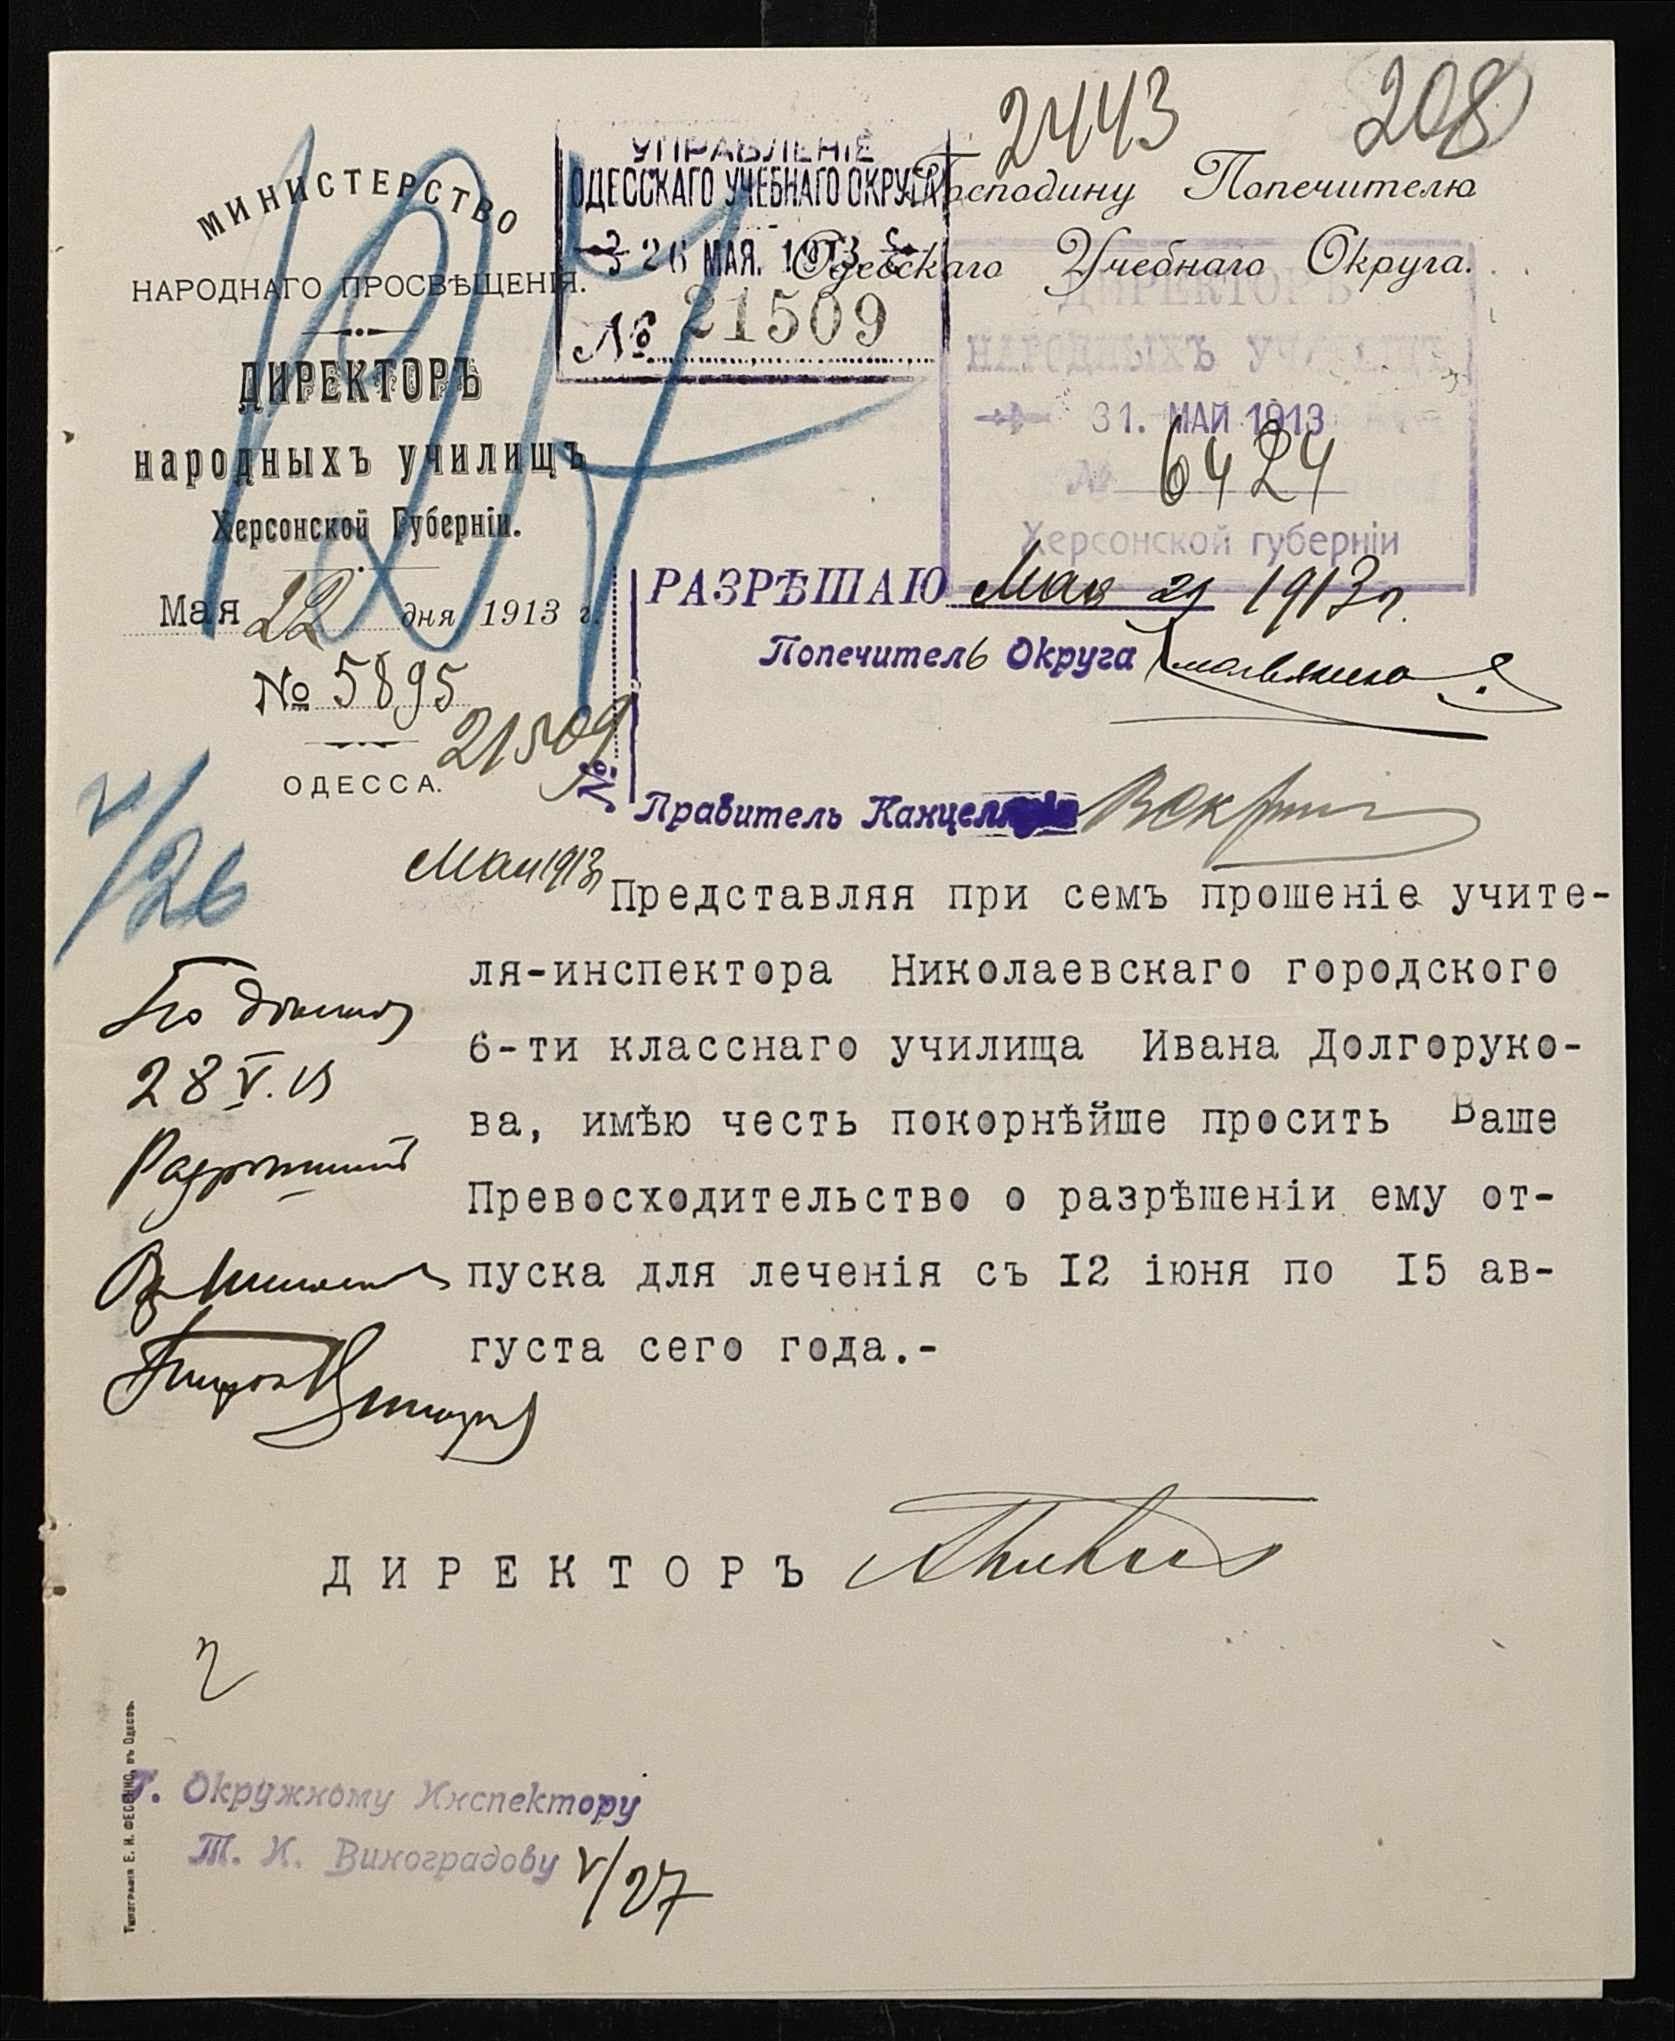 2443
208
МИНИСТЕРСТВО
НАРОДНАГО ПРОСВѢЩЕНІЯ.
ДИРЕКТОРЪ
народныхъ училищъ
Херсонской Губерніи.
Мая 22 дня 1913 г.
№ 5895
ОДЕССА.
УПРАВЛЕНІЕ
ОДЕССКАГО УЧЕБНАГО ОКРУГА
26 МАЯ. 1913
№ 21509
Господину Попечителю
Одесскаго Учебнаго Округа.
ДИРЕКТОРЪ
НАРОДНЫХЪ УЧИЛИЩЪ
31. МАЙ 1913
№ 6424
Херсонской губерніи
РАЗРѢШАЮ Мая 1913 г.
Попечитель Округа
№ 21509
Правитель Канцеляріи
V/26
Мая 1913
Представляя при семъ прошеніе учите-
ля-инспектора Николаевскаго городского
6-ти класснаго училища Ивана Долгоруко-
ва, имѣю честь покорнѣйше просить Ваше
Превосходительство о разрѣшеніи ему от-
пуска для леченія съ I2 іюня по I5 ав-
густа сего года.-
28 V.
ДИРЕКТОРЪ
Г. Окружному Инспектору
Т. И. Виноградову V/27
Типографія Е. И. ФЕСЕНКО, въ Одессѣ.